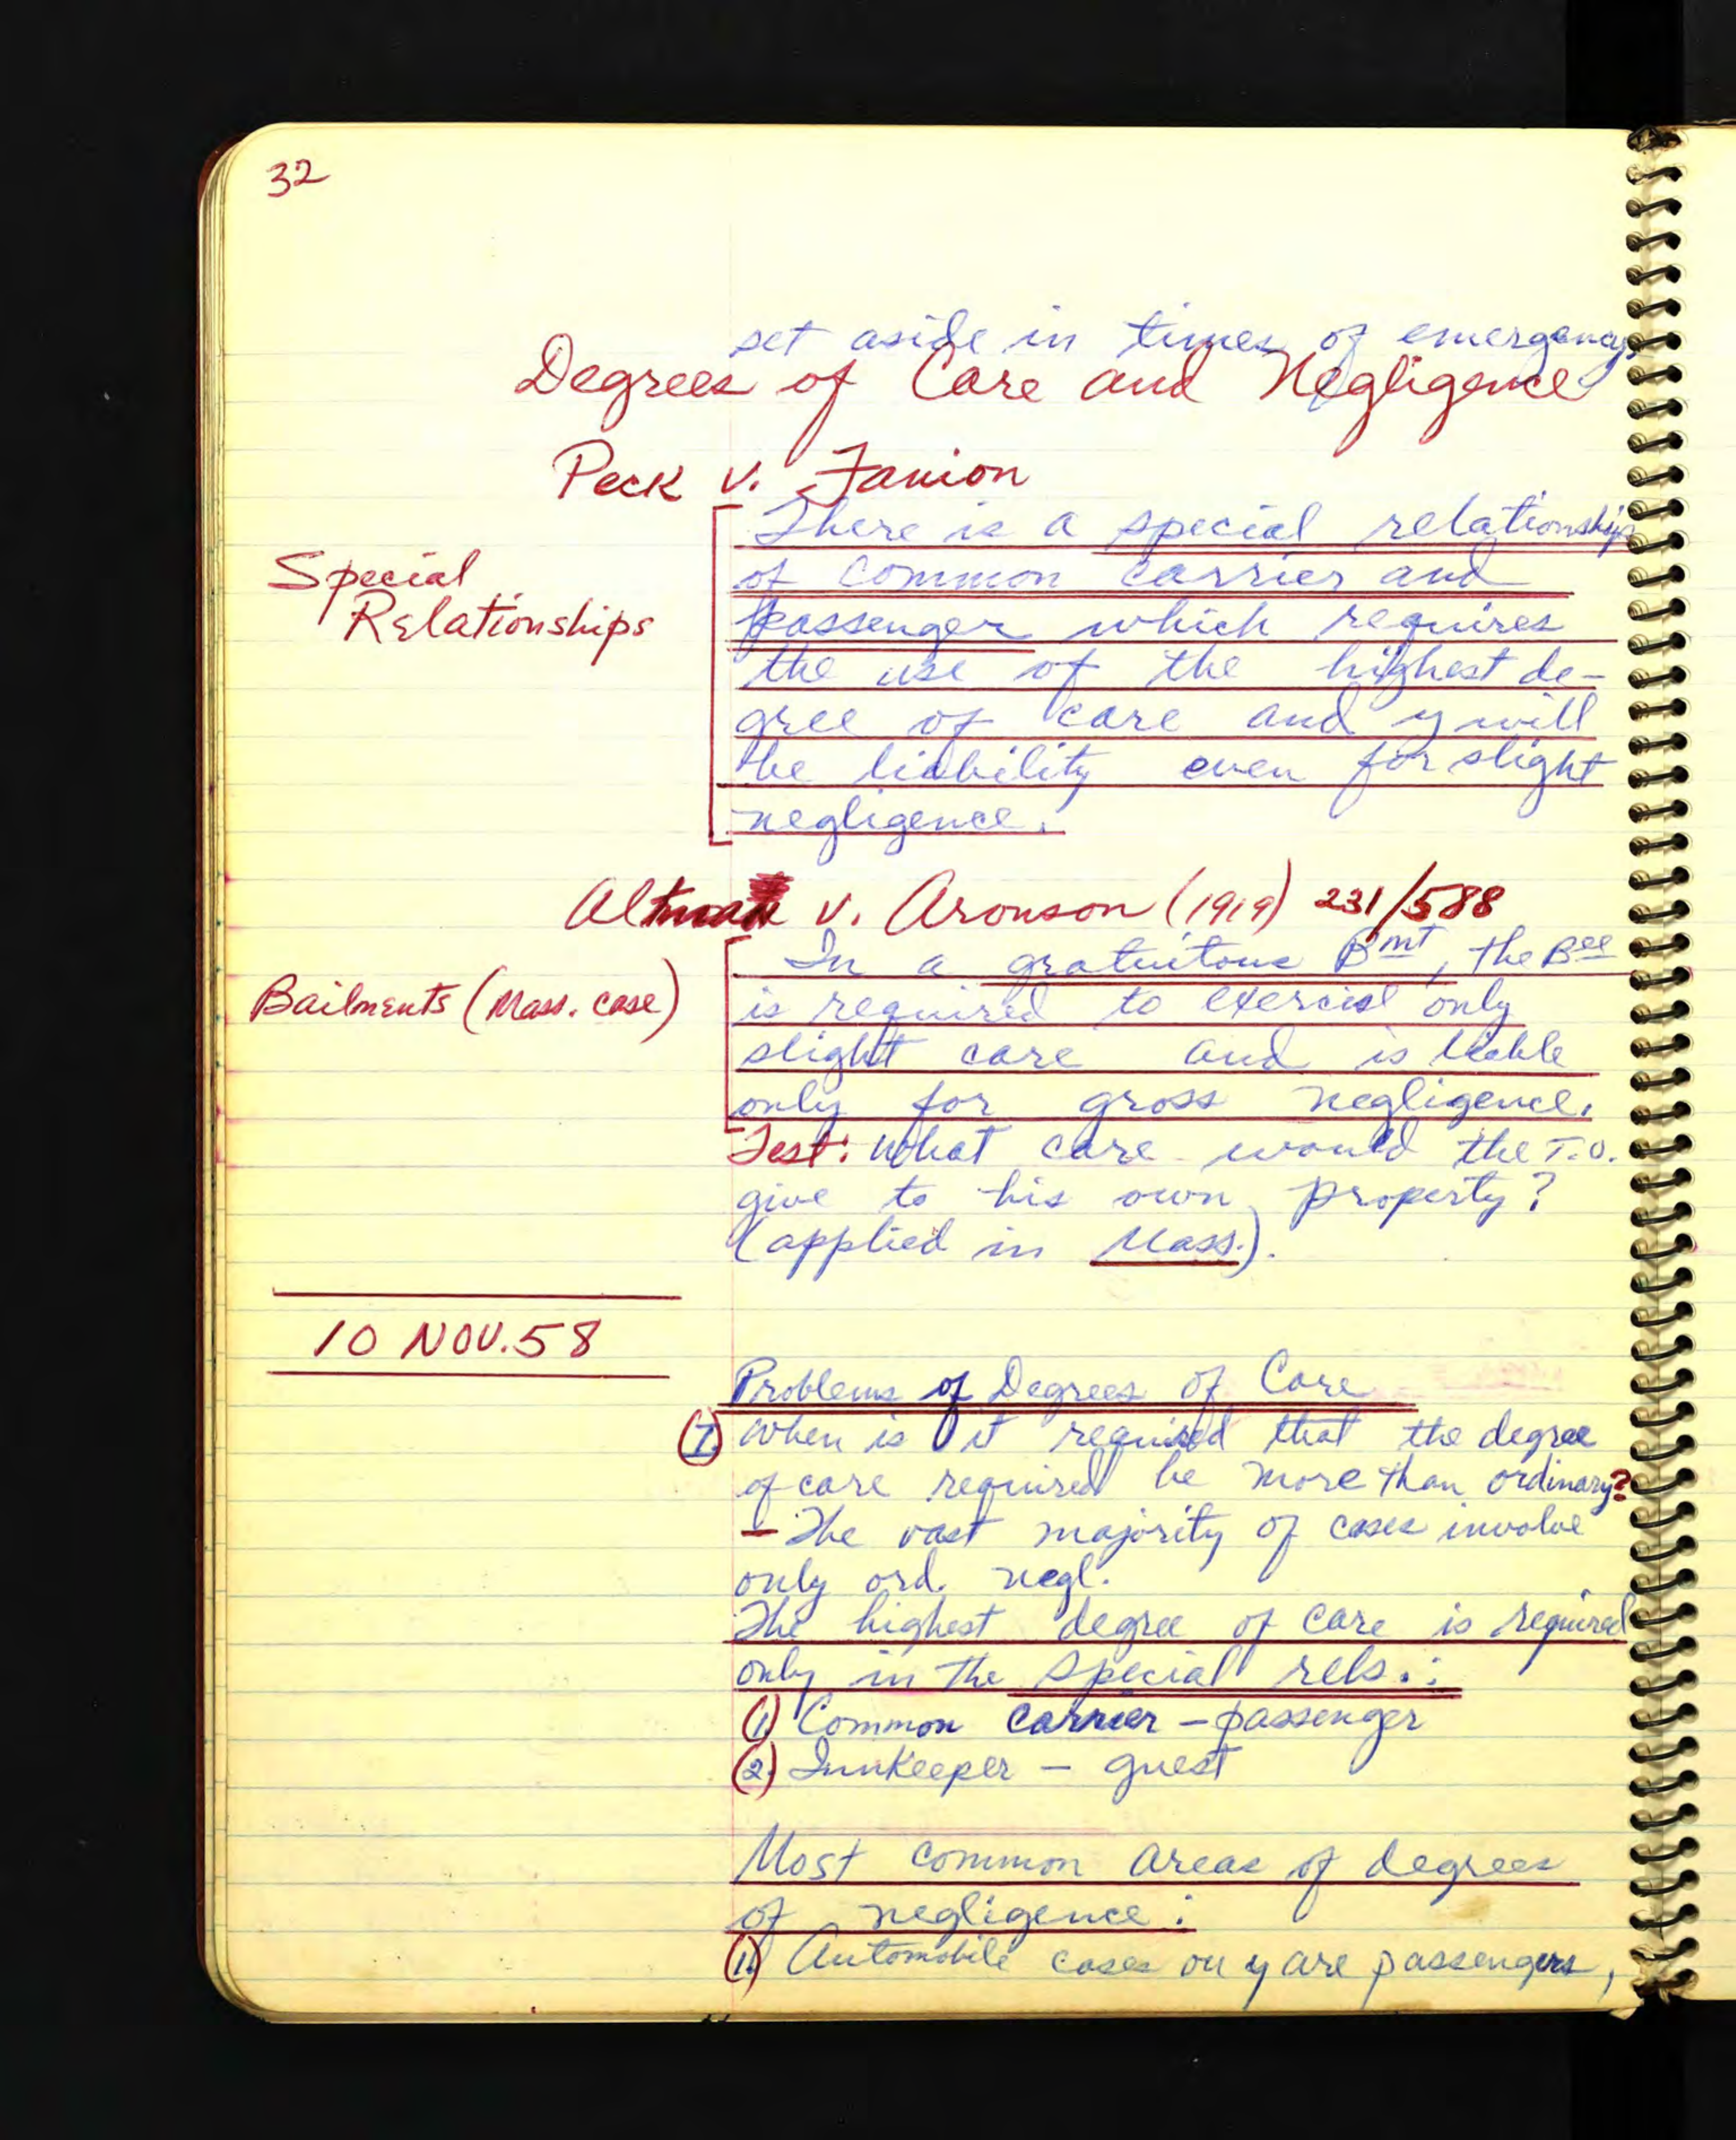 32
set aside in times of emergency.
Degrees of Care and Negligence
Peck v. Fanion
There is a special relationship
of common carrier and
Special
Relationships
passenger which requires
the use of the highest de-
gree of care and y will
be liability even for slight
negligence.
Altman v. Aronson (1919) 231/588
In a gratuitous Bmt, the Bee
Bailments (Mass. case)
is required to exercise only
slight care and is liable
only for gross negligence.
Test: What care would the T.O.
give to his own property?
(applied in Mass.).
10 NOV. 58
Problems of Degrees of Care
I. When is it required that the degree
of care required be more than ordinary?
— The vast majority of cases involve
only ord. negl.
The highest degree of care is required
only in the special rels.:
(1) Common carrier – passenger
(2.) Innkeeper – guest
Most common areas of degrees
of negligence:
(1.) Automobile cases ou y are passengers,